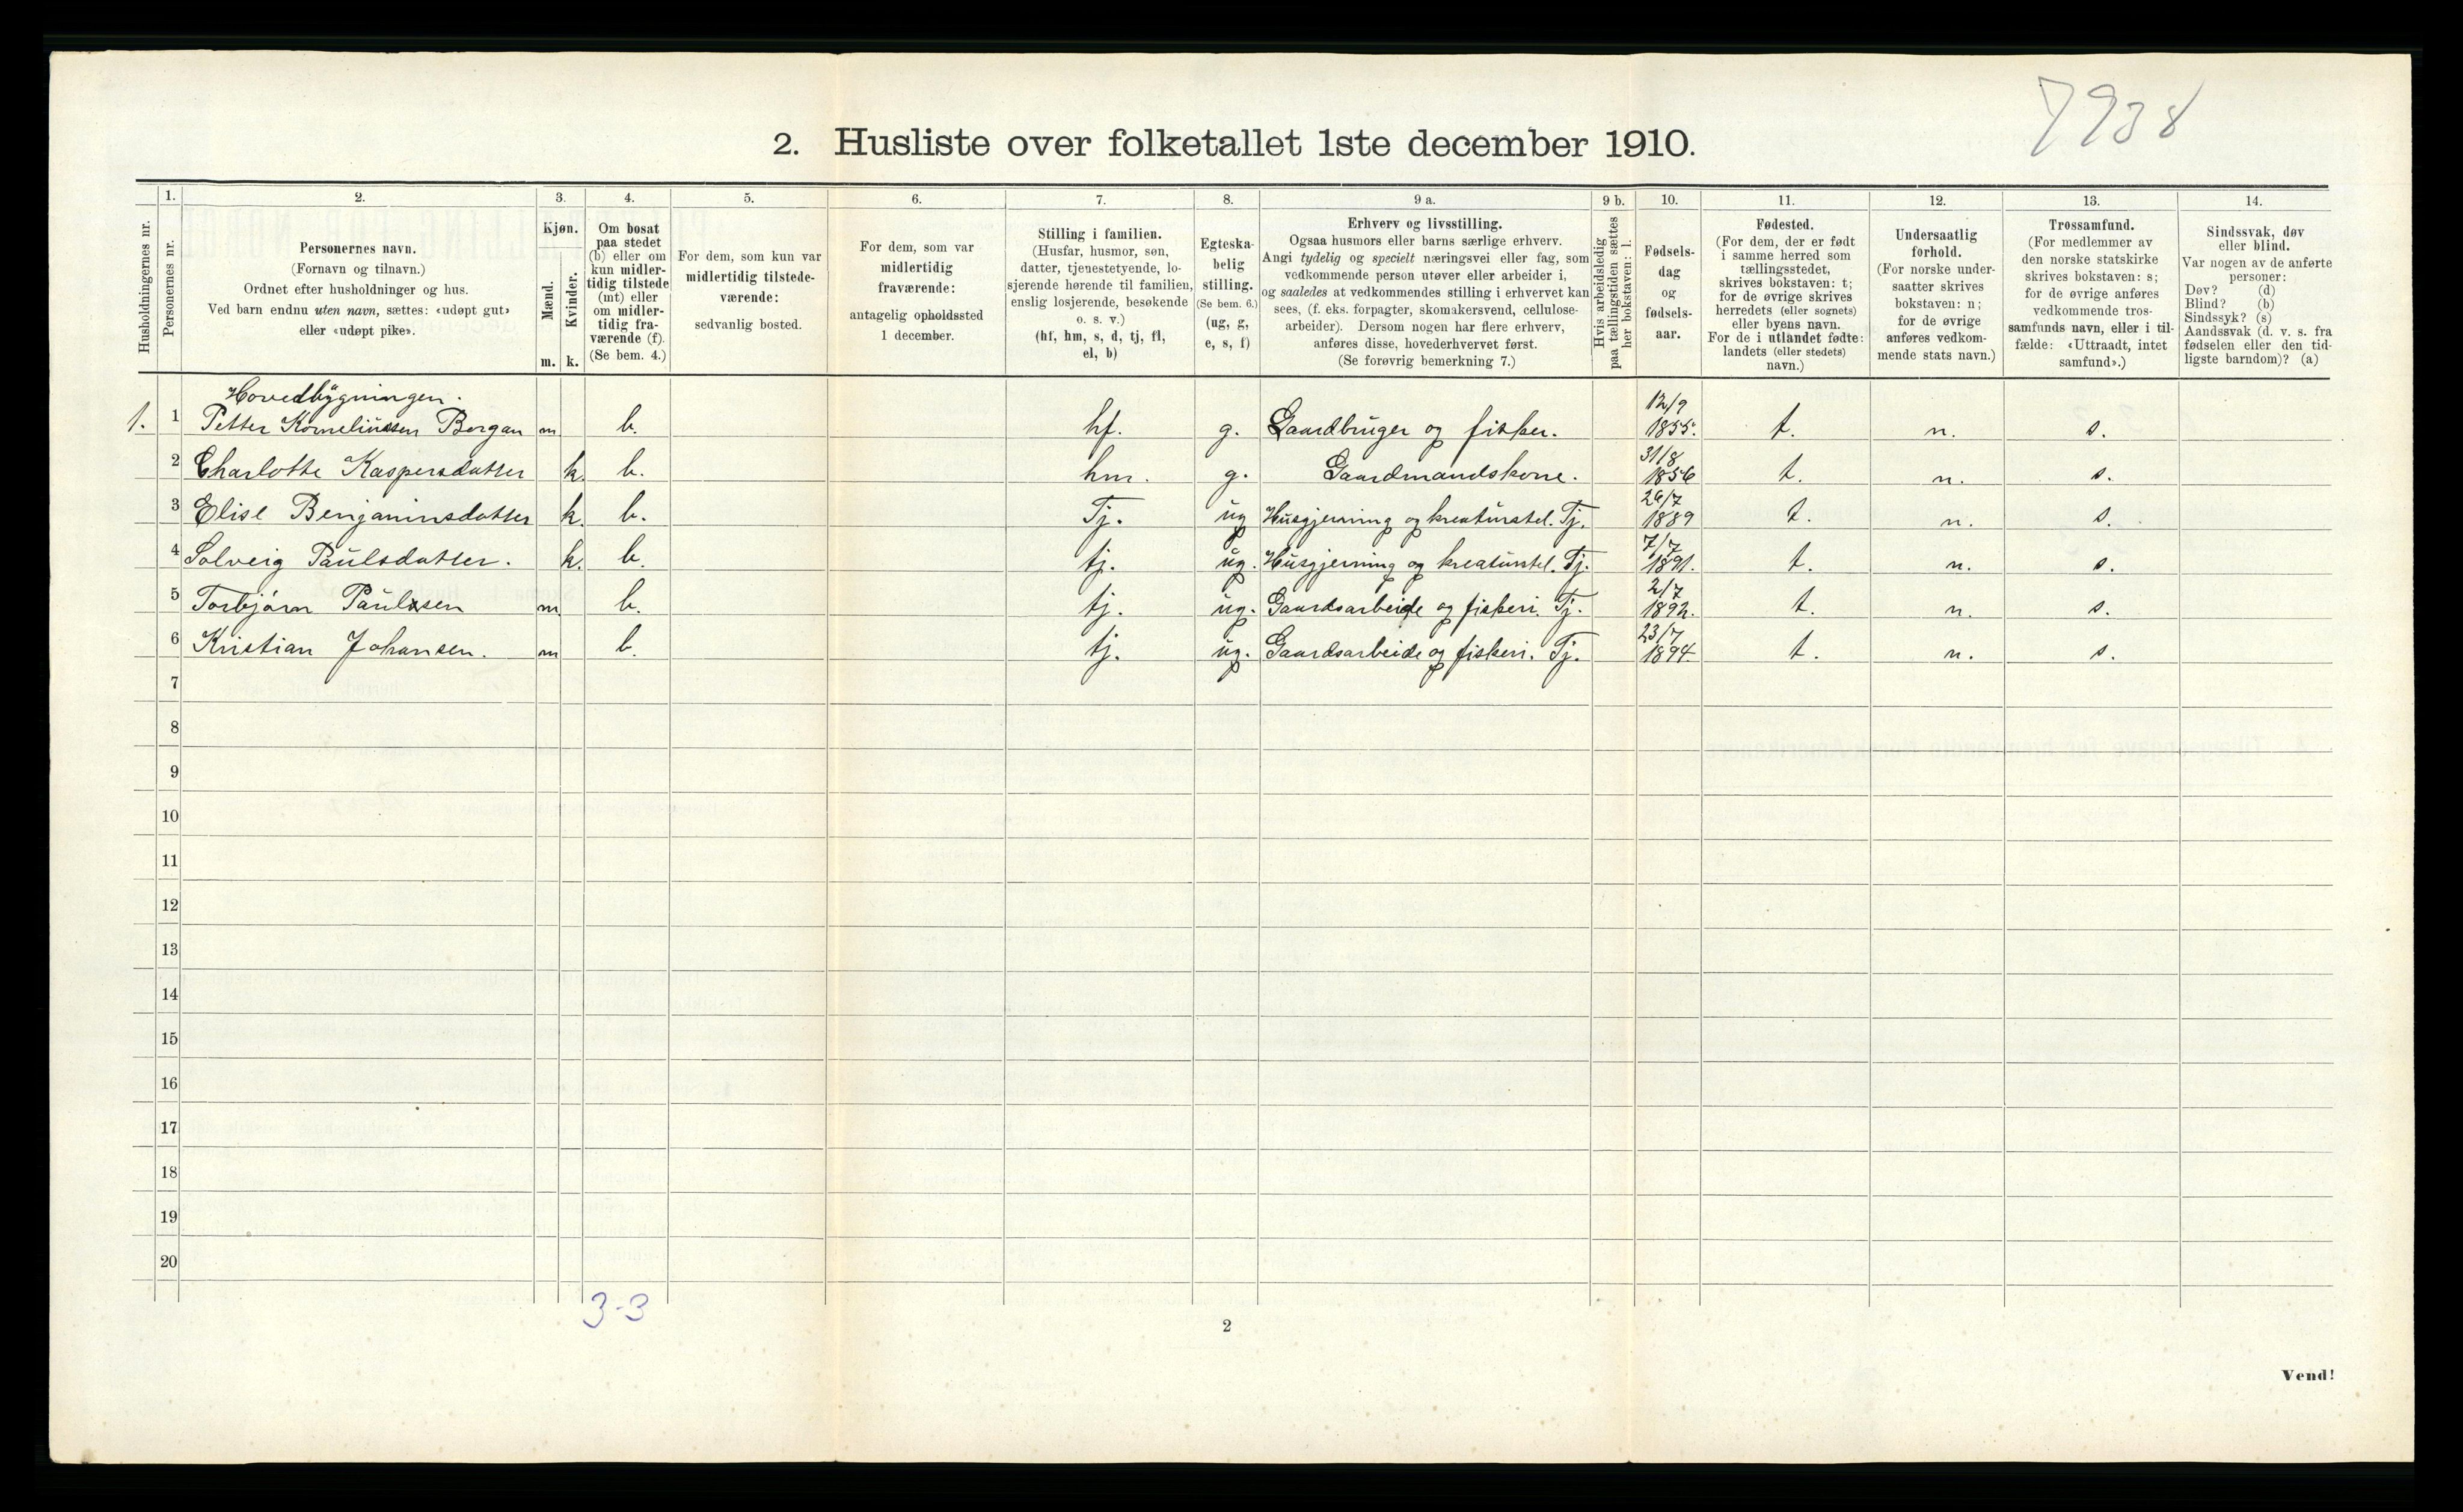 7938
2. Husliste over folketallet 1ste december 1910.
Husholdningernes nr.
1.
Personernes nr.
2.
Personernes navn.
(Fornavn og tilnavn.)
Ordnet efter husholdninger og hus.
Ved barn endnu uten navn, sættes: «udøpt gut»
eller «udøpt pike».
3.
Kjøn.
Mænd.
m.
Kvinder.
k.
4.
Om bosat
paa stedet
(b) eller om
kun midler-
tidig tilstede
(mt) eller
om midler-
tidig fra-
værende (f).
(Se bem. 4.)
5.
For dem, som kun var
midlertidig tilstede-
værende:
sedvanlig bosted.
6.
For dem, som var
midlertidig
fraværende:
antagelig opholdssted
1 december.
7.
Stilling i familien.
(Husfar, husmor, søn,
datter, tjenestetyende, lo-
sjerende hørende til familien,
enslig losjerende, besøkende
o. s. v.)
(hf, hm, s, d, tj, fl,
el, b)
8.
Egteska-
belig
stilling.
(Se bem. 6.)
(ug, g,
e, s, f)
9 a.
Erhverv og livsstilling.
Ogsaa husmors eller barns særlige erhverv.
Angi tydelig og specielt næringsvei eller fag, som
vedkommende person utøver eller arbeider i,
og saaledes at vedkommendes stilling i erhvervet kan
sees, (f. eks. forpagter, skomakersvend, cellulose-
arbeider). Dersom nogen har flere erhverv,
anføres disse, hovederhvervet først.
(Se forøvrig bemerkning 7.)
9 b.
Hvis arbeidsledig
paa tællingstiden sættes
her bokstaven: l.
10.
Fødsels-
dag
og
fødsels-
aar.
11.
Fødested.
(For dem, der er født
i samme herred som
tællingsstedet,
skrives bokstaven: t;
for de øvrige skrives
herredets (eller sognets)
eller byens navn.
For de i utlandet fødte:
landets (eller stedets)
navn.)
12.
Undersaatlig
forhold.
(For norske under-
saatter skrives
bokstaven: n;
for de øvrige
anføres vedkom-
mende stats navn.)
13.
Trossamfund.
(For medlemmer av
den norske statskirke
skrives bokstaven: s;
for de øvrige anføres
vedkommende tros-
samfunds navn, eller i til-
fælde: «Uttraadt, intet
samfund».)
14.
Sindssvak, døv
eller blind.
Var nogen av de anførte
personer:
Døv? (d)
Blind? (b)
Sindssyk? (s)
Aandssvak (d. v. s. fra
fødselen eller den tid-
ligste barndom)? (a)
Hovedbygningen.
1. 1 Petter Korneliussen Borgan m b. hf. g. Gaardbruger og fisker. 12/9 1855. t. n. s.
2 Charlotte Kaspersdatter k. b. hm. g. Gaardmandskone. 31/8 1856 t. n. s.
3 Elise Benjaminsdatter k. b. Tj. ug Husgjerning og kreaturstel. Tj. 26/7 1889 t. n. s.
4 Solveig Paulsdatter. k. b. tj. ug. Husgjerning og kreaturstel. Tj. 7/7 1891. t. n. s.
5 Torbjørn Paulsen m b. tj. ug. Gaardsarbeide og fiskeri. Tj. 2/7 1892. t. n. s.
6 Kristian Johansen. m b. tj. ug. Gaardsarbeide og fiskeri. Tj. 23/7 1894. t. n. s.
7
8
9
10
11
12
13
14
15
16
17
18
19
20
3-3
2
Vend!